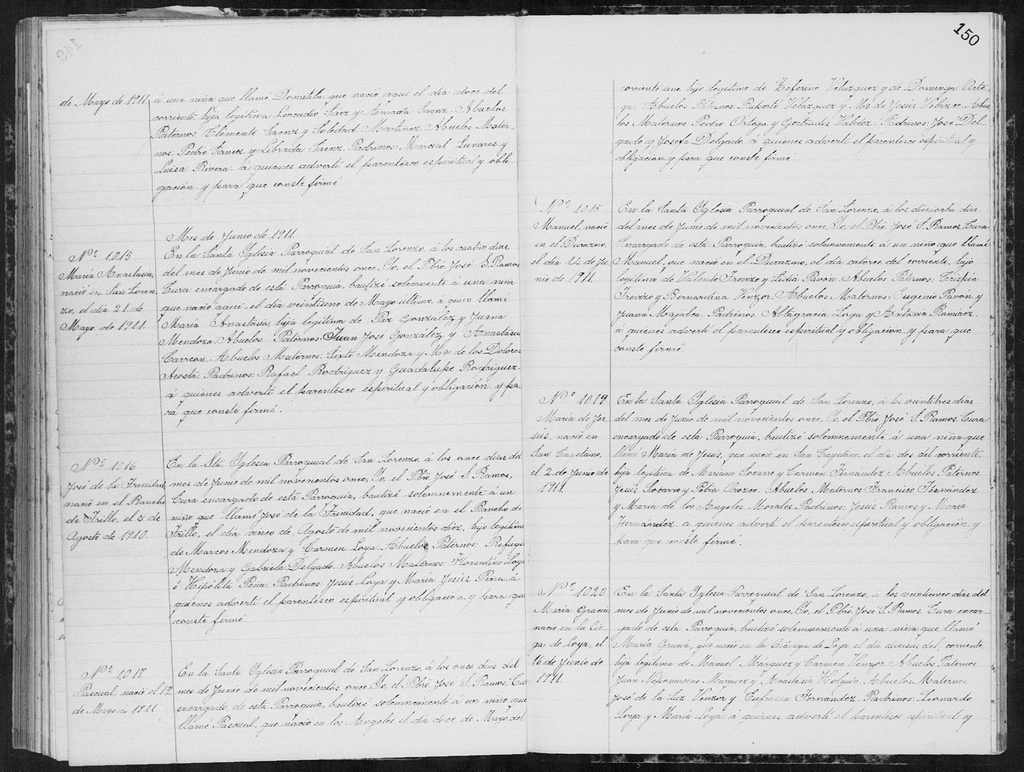 150
de Mayo de 1911.
á una niña que llamé Domitila que nació aquí el día doce del
corriente hija legítima Saenz. Abuelos
Paternos Clemente Saenz y Soledad Martínez. Abuelos Mater-
nos Pedro y Librada Saenz. Padrinos Marcial Linares y
Luisa Rivera á quienes advertí el parentesco espiritual y obli-
gación y para que conste firmé
Mes de Junio de 1911.
Nº 1215
María Anastasia,
nació en San Loren-
zo, el día 21 de
Mayo de 1911.
En la Santa Yglesia Parroquial de San Lorenzo, á los cuatro días
del mes de Junio de mil novecientos once, Yo, el Pbro José S. Ramos,
Cura encargado de esta Parroquia, bauticé solemnemente á una niña
que nació aquí el día veintiuno de Mayo último, á quien llamé
María Anastasia, hija legítima de Paz González y Juana
Mendoza. Abuelos Paternos: Juan José González y Anastasia
Carreon. Abuelos Maternos: Sixto Mendoza y Ma. de los Dolores
Acosta. Padrinos Rafael Rodríguez y Guadalupe Rodríguez
á quienes advertí el parentesco espiritual y obligación y pa-
ra que conste firmé.
Nº 1016
José de la Trinidad
nació en el Rancho
de Trillo, el 5 de
Agosto de 1910.
En la Sta Yglesia Parroquial de San Lorenzo, á los once días del
mes de Junio de mil novecientos once, Yo, el Pbro José S. Ramos,
Cura encargado de esta Parroquia, bauticé solemnemente á un
niño que llamé José de la Trinidad, que nació en el Rancho de
Trillo, el día cinco de Agosto de mil novecientos diez, hijo legítimo
de Marcos Mendoza y Carmen Loya. Abuelos Paternos Refugio
Mendoza y Gabriela Delgado. Abuelos Maternos Florentino Loya
é Hipólita Peña. Padrinos Jesús Loya y María Jesús Pérez á
quienes advertí el parentesco espiritual y obligación y para que
conste firmé
Nº 1017
Pascual, nació el 12
de Mayo de 1911
En la Santa Yglesia Parroquial de San Lorenzo, á los once días del
mes de Junio de mil novecientos once, Yo, el Pbro José S. Ramos, Cura
encargado de esta Parroquia, bauticé solemnemente á un niño que
llamé Pascual, que nació en los Angeles el día doce de Mayo del
corriente año, hijo legítimo de Ceferino Velázquez y de Domenga Orte-
ga. Abuelos Paternos Velázquez y Ma. de Jesús Abue-
los Maternos Pedro Ortega y Gertrudis Padrinos José Del-
gado y Josefa Delgado á quienes advertí el parentesco espiritual y
obligación y para que conste firmé.
Nº 1018
Manuel, nació
en el Durazno,
el día 14 de Ju-
nio de 1911.
En la Santa Yglesia Parroquial de San Lorenzo, á los dieciocho días
del mes de Junio de mil novecientos once, Yo, el Pbro José S. Ramos, Cura
encargado de esta Parroquia, bauticé solemnemente á un niño que llamé
Manuel, que nació en el Durazno, el día catorce del corriente, hijo
legítimo de y Lidia Pavón. Abuelos Paternos,
y Bernardina Abuelos Maternos Eugenio Pavón y
Juana Padrinos Altagracia Loya y Ramírez
á quienes advertí el parentesco espiritual y obligación, y para que
conste firmé.
Nº 1019
María de Je-
sús, nació en
San Cayetano,
el 2 de Junio de
1911.
En la Santa Yglesia Parroquial de San Lorenzo, á los veintitres días
del mes de Junio de mil novecientos once, Yo, el Pbro José S. Ramos, Cura
encargado de esta Parroquia, bauticé solemnemente á una niña que
llamé María de Jesús, que nació en San Cayetano, el día dos del corriente,
hija legítima de Mariano y Carmen Fernandez. Abuelos Paternos
Jesús y Orozco. Abuelos Maternos Francisco Fernández
y María de los Angeles Morales. Padrinos Jesús Ramos y María
Fernandez á quienes advertí el parentesco espiritual y obligación, y
para que conste firmé.
Nº 1020
María Gracia,
nació en la Cié-
ga de Loya, el
16 de Junio de
1911.
En la Santa Yglesia Parroquial de San Lorenzo, á los veintiocho días del
mes de Junio de mil novecientos once, Yo, el Pbro José S. Ramos, Cura encar-
gado de esta Parroquia, bauticé solemnemente á una niña que llamé
María Gracia, que nació en la Ciénega de Loya, el día dieciséis, del corriente
hija legítima de Manuel Márquez y Carmen Venzor. Abuelos Paternos
Juan Nepomuceno Márquez y Anastasia Holguín. Abuelos Maternos
José de la Luz Venzor y Eufracia Fernández. Padrinos Leonardo
Loya y María Loya á quienes advertí el parentesco espiritual y